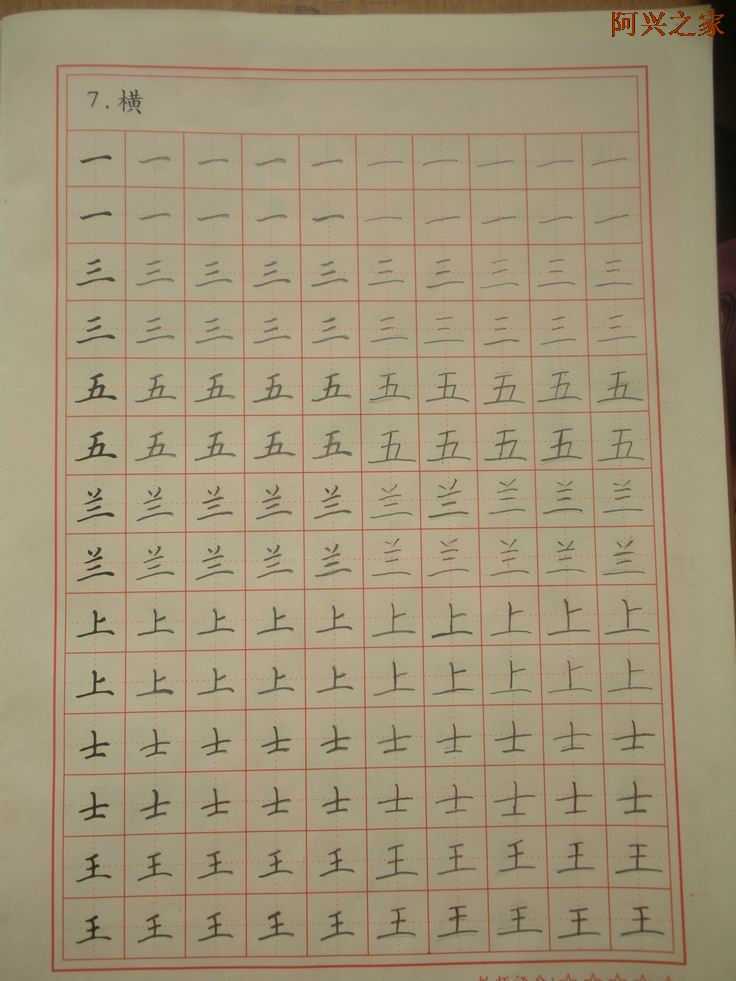 阿兴之家
7.横
一一一一一一一一一一
一一一一一一一一一一
三三三三三三三三三三
三三三三三三三三三三
五五五五五五五五五五
五五五五五五五五五五
兰兰兰兰兰兰兰兰兰兰
兰兰兰兰兰兰兰兰兰兰
上上上上上上上上上上
上上上上上上上上上上
士士士士士士士士士士
士士士士士士士士士士
王王王王王王王王王王
王王王王王王王王王王